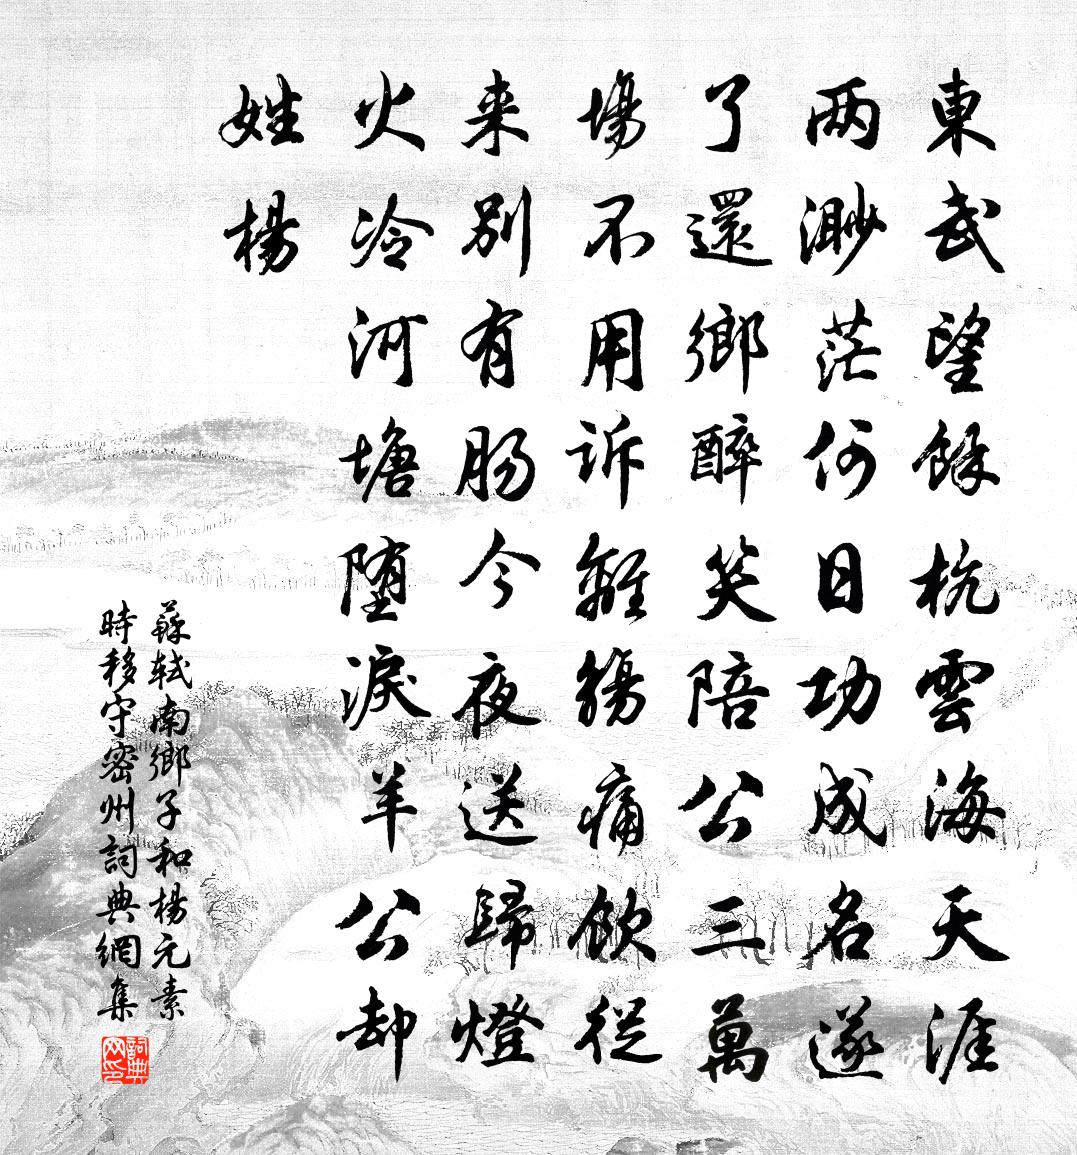 東武望餘杭雲海天涯
两渺茫何日功成名遂
了還鄉醉笑陪公三萬
場不用訴離觴痛飲從
来別有肠今夜送歸燈
火冷河塘堕淚羊公却
姓楊
蘇軾南鄉子和楊元素
時移守密州詞典網集
詞典网印